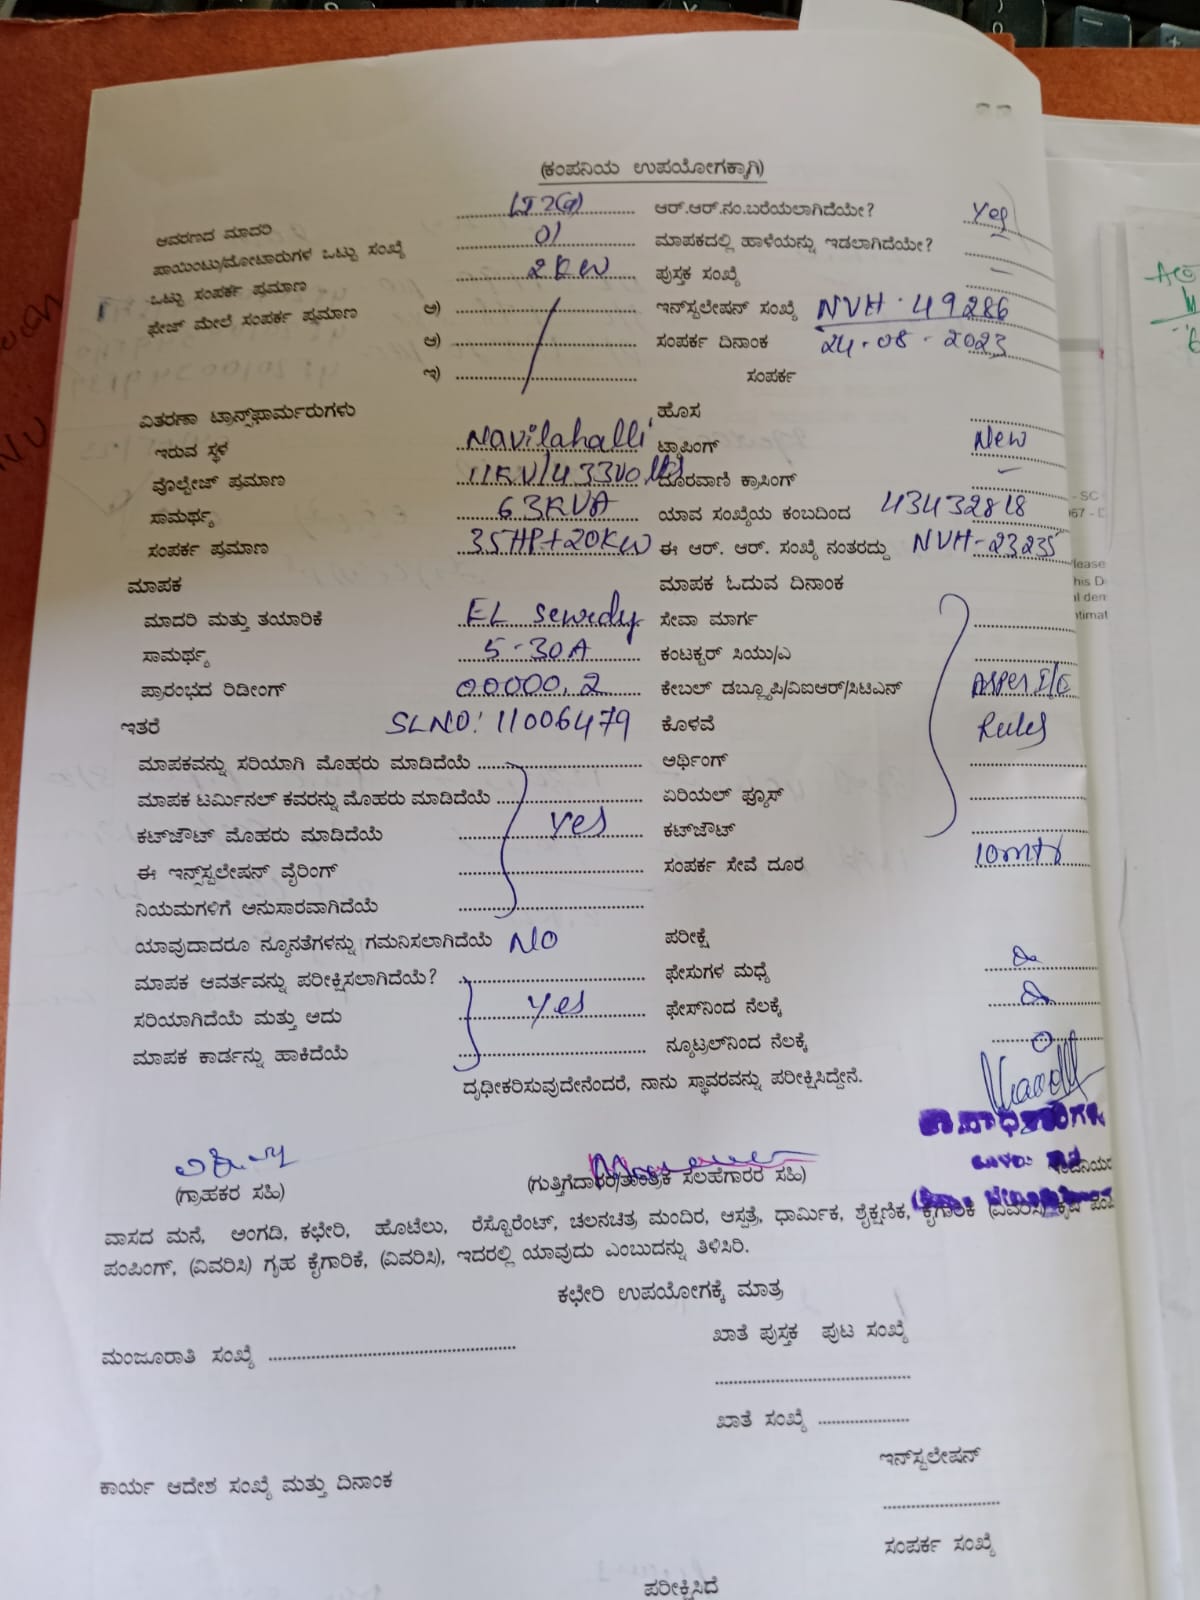 (ಕಂಪನಿಯ ಉಪಯೋಗಕ್ಕಾಗಿ)
ಆವರಣದ ಮಾದರಿ LT2(a) ಆರ್.ಆರ್.ನಂ.ಬರೆಯಲಾಗಿದೆಯೇ? Yes
ಪಾಯಿಂಟು/ಮೋಟಾರುಗಳ ಒಟ್ಟು ಸಂಖ್ಯೆ 01 ಮಾಪಕದಲ್ಲಿ ಹಾಳೆಯನ್ನು ಇಡಲಾಗಿದೆಯೇ? –
ಒಟ್ಟು ಸಂಪರ್ಕ ಪ್ರಮಾಣ 2KW ಪುಸ್ತಕ ಸಂಖ್ಯೆ
ಫೇಜ್ ಮೇಲೆ ಸಂಪರ್ಕ ಪ್ರಮಾಣ ಅ) ಇನ್‌ಸ್ಟಲೇಷನ್ ಸಂಖ್ಯೆ NVH-49286
ಆ) ಸಂಪರ್ಕ ದಿನಾಂಕ 24-08-2023
ಇ) ಸಂಪರ್ಕ
ವಿತರಣಾ ಟ್ರಾನ್ಸ್‌ಫಾರ್ಮರುಗಳು ಹೊಸ
ಇರುವ ಸ್ಥಳ Navilahalli ಟ್ಯಾಪಿಂಗ್ New
ವೊಲ್ಟೇಜ್ ಪ್ರಮಾಣ 11KV/433Volts ದೂರವಾಣಿ ಕ್ರಾಸಿಂಗ್ –
ಸಾಮರ್ಥ್ಯ 63KVA ಯಾವ ಸಂಖ್ಯೆಯ ಕಂಬದಿಂದ 43432818
ಸಂಪರ್ಕ ಪ್ರಮಾಣ 35HP+20KW ಈ ಆರ್. ಆರ್. ಸಂಖ್ಯೆ ನಂತರದ್ದು NVH-23235
ಮಾಪಕ ಮಾಪಕ ಓದುವ ದಿನಾಂಕ
ಮಾದರಿ ಮತ್ತು ತಯಾರಿಕೆ EL Sewedy ಸೇವಾ ಮಾರ್ಗ
ಸಾಮರ್ಥ್ಯ 5-30A ಕಂಟಕ್ಟರ್ ಸಿಯು/ಎ
ಪ್ರಾರಂಭದ ರಿಡೀಂಗ್ 00000.2 ಕೇಬಲ್ ಡಬ್ಲ್ಯೂಪಿ/ವಿಐಆರ್/ಸಿಟಿಎನ್ Asper I/E
ಇತರೆ SLNO: 11006479 ಕೊಳವೆ Rules
ಮಾಪಕವನ್ನು ಸರಿಯಾಗಿ ಮೊಹರು ಮಾಡಿದೆಯೆ ಅರ್ಥಿಂಗ್
ಮಾಪಕ ಟರ್ಮಿನಲ್ ಕವರನ್ನು ಮೊಹರು ಮಾಡಿದೆಯೆ ಏರಿಯಲ್ ಫ್ಯೂಸ್
ಕಟ್‌ಜೌಟ್ ಮೊಹರು ಮಾಡಿದೆಯೆ yes ಕಟ್‌ಜೌಟ್
ಈ ಇನ್‌ಸ್ಟಲೇಷನ್ ವೈರಿಂಗ್ ಸಂಪರ್ಕ ಸೇವೆ ದೂರ 10mtr
ನಿಯಮಗಳಿಗೆ ಅನುಸಾರವಾಗಿದೆಯೆ
ಯಾವುದಾದರೂ ನ್ಯೂನತೆಗಳನ್ನು ಗಮನಿಸಲಾಗಿದೆಯೆ NO ಪರೀಕ್ಷೆ
ಮಾಪಕ ಆವರ್ತವನ್ನು ಪರೀಕ್ಷಿಸಲಾಗಿದೆಯೆ? ಫೇಸುಗಳ ಮಧ್ಯೆ
ಸರಿಯಾಗಿದೆಯೆ ಮತ್ತು ಅದು yes ಫೇಸ್‌ನಿಂದ ನೆಲಕ್ಕೆ
ಮಾಪಕ ಕಾರ್ಡನ್ನು ಹಾಕಿದೆಯೆ ನ್ಯೂಟ್ರಲ್‌ನಿಂದ ನೆಲಕ್ಕೆ 0
ದೃಢೀಕರಿಸುವುದೇನೆಂದರೆ, ನಾನು ಸ್ಥಾವರವನ್ನು ಪರೀಕ್ಷಿಸಿದ್ದೇನೆ.
(ಗ್ರಾಹಕರ ಸಹಿ) (ಗುತ್ತಿಗೆದಾರರ/ತಾಂತ್ರಿಕ ಸಲಹೆಗಾರರ ಸಹಿ)
ವಾಸದ ಮನೆ, ಅಂಗಡಿ, ಕಛೇರಿ, ಹೊಟೆಲು, ರೆಸ್ಟೋರೆಂಟ್, ಚಲನಚಿತ್ರ ಮಂದಿರ, ಆಸ್ಪತ್ರೆ, ಧಾರ್ಮಿಕ, ಶೈಕ್ಷಣಿಕ, ಕೈಗಾರಿಕೆ (ವಿವರಿಸಿ) ಕೃಷಿ
ಪಂಪಿಂಗ್, (ವಿವರಿಸಿ) ಗೃಹ ಕೈಗಾರಿಕೆ, (ವಿವರಿಸಿ), ಇದರಲ್ಲಿ ಯಾವುದು ಎಂಬುದನ್ನು ತಿಳಿಸಿರಿ.
ಕಛೇರಿ ಉಪಯೋಗಕ್ಕೆ ಮಾತ್ರ
ಮಂಜೂರಾತಿ ಸಂಖ್ಯೆ ಖಾತೆ ಪುಸ್ತಕ ಪುಟ ಸಂಖ್ಯೆ
ಖಾತೆ ಸಂಖ್ಯೆ
ಇನ್‌ಸ್ಟಲೇಷನ್
ಕಾರ್ಯ ಆದೇಶ ಸಂಖ್ಯೆ ಮತ್ತು ದಿನಾಂಕ
ಸಂಪರ್ಕ ಸಂಖ್ಯೆ
ಪರೀಕ್ಷಿಸಿದೆ